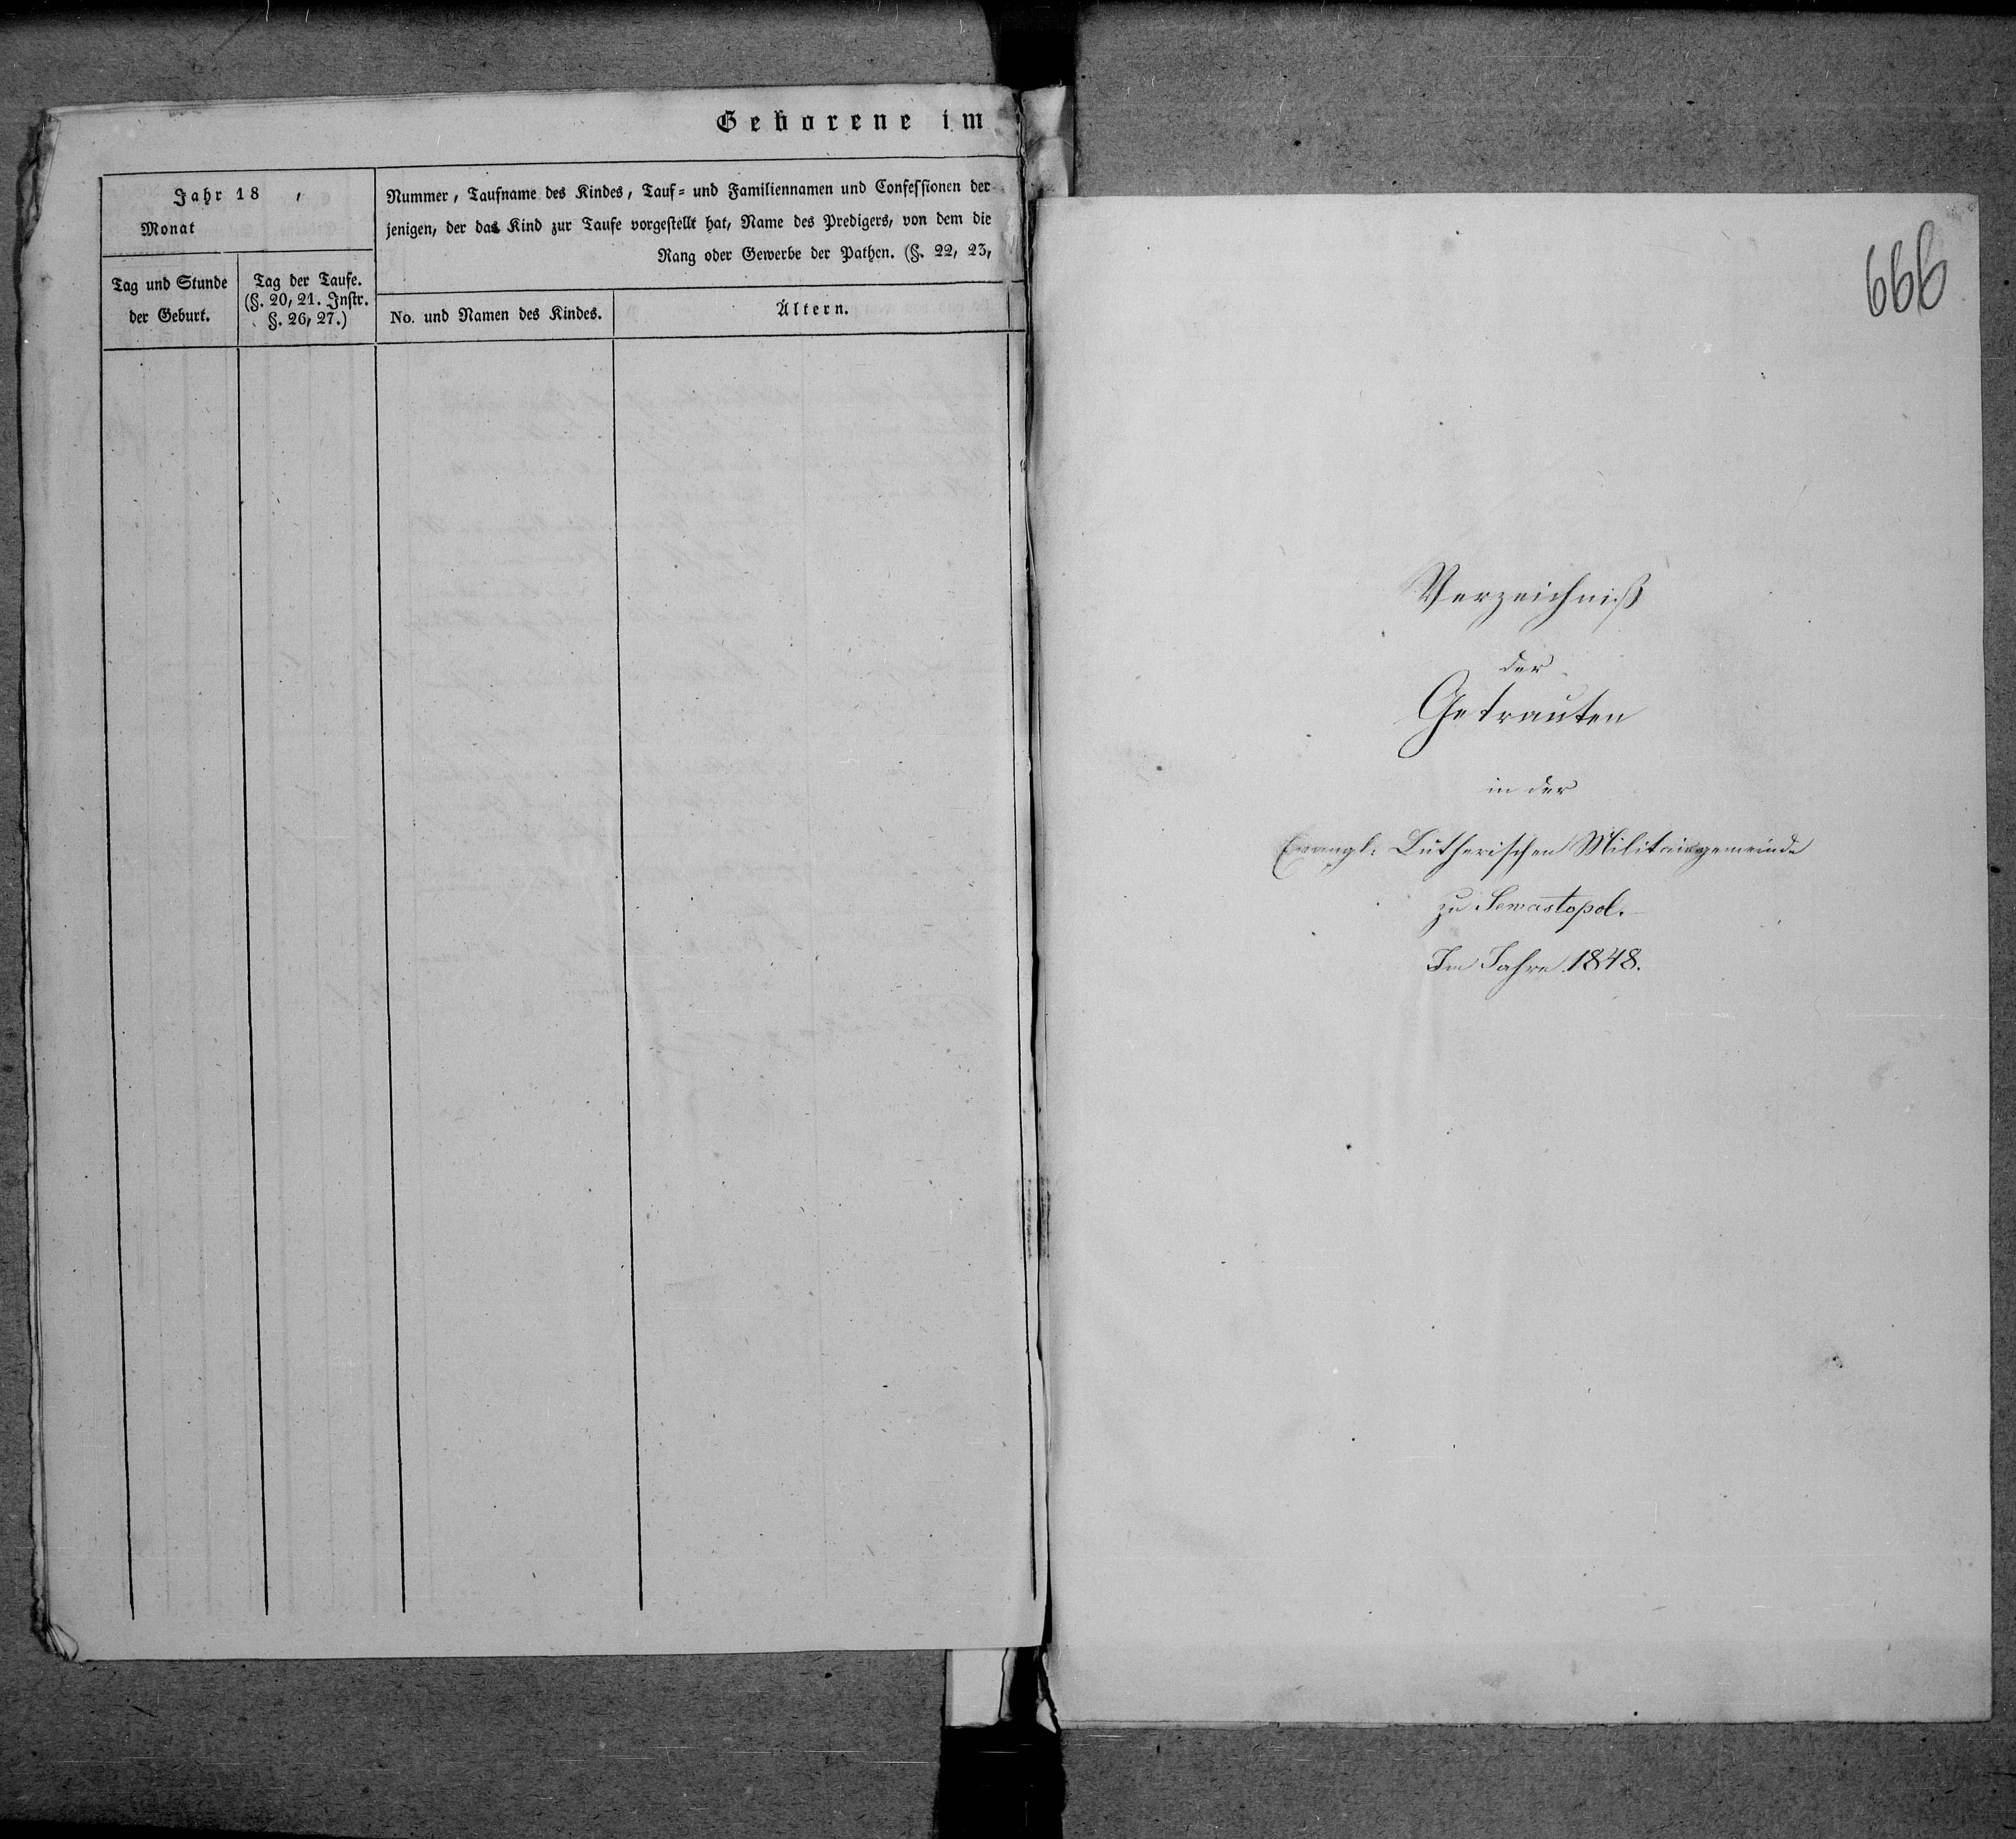 Geborene im
Jahr 18 ,
Monat
Tag und Stunde
der Geburt.
Tag der Taufe.
(§. 20, 21. Instr.
§. 26, 27.)
Nummer, Taufname des Kindes, Tauf- und Familiennamen und Confessionen der
jenigen, der das Kind zur Taufe vorgestellt hat, Name des Predigers, von dem die
Rang oder Gewerbe der Pathen. (§. 22, 23,
No. und Namen des Kindes.
Ältern.
666
Verzeichniß
der
Getrauten
in der
Evangl: Lutherischen Militairgemeinde
zu Sewastopol.
Im Jahre 1848.